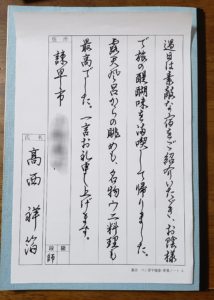 過日は素敵な宿をご紹介いただき、お陰様
で旅の醍醐味を満喫して帰りました。
露天風呂からの眺めも、名物ウニ料理も
最高でした。一言お礼申し上げます。
住所
諫早市
氏名
高西祥苑
段
級
師